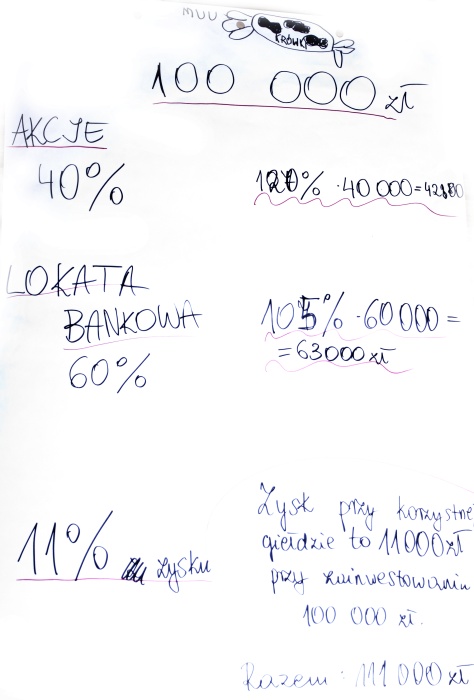 MUU
100 000 zł
AKCJE
40%
120% · 40 000 =
LOKATA
BANKOWA
60%
105% · 60 000 =
= 63 000 zł
11% zysku
Zysk przy korzystne
giełdzie to 11000 zł
przy zainwestowaniu
100 000 zł.
Razem: 111 000 zł